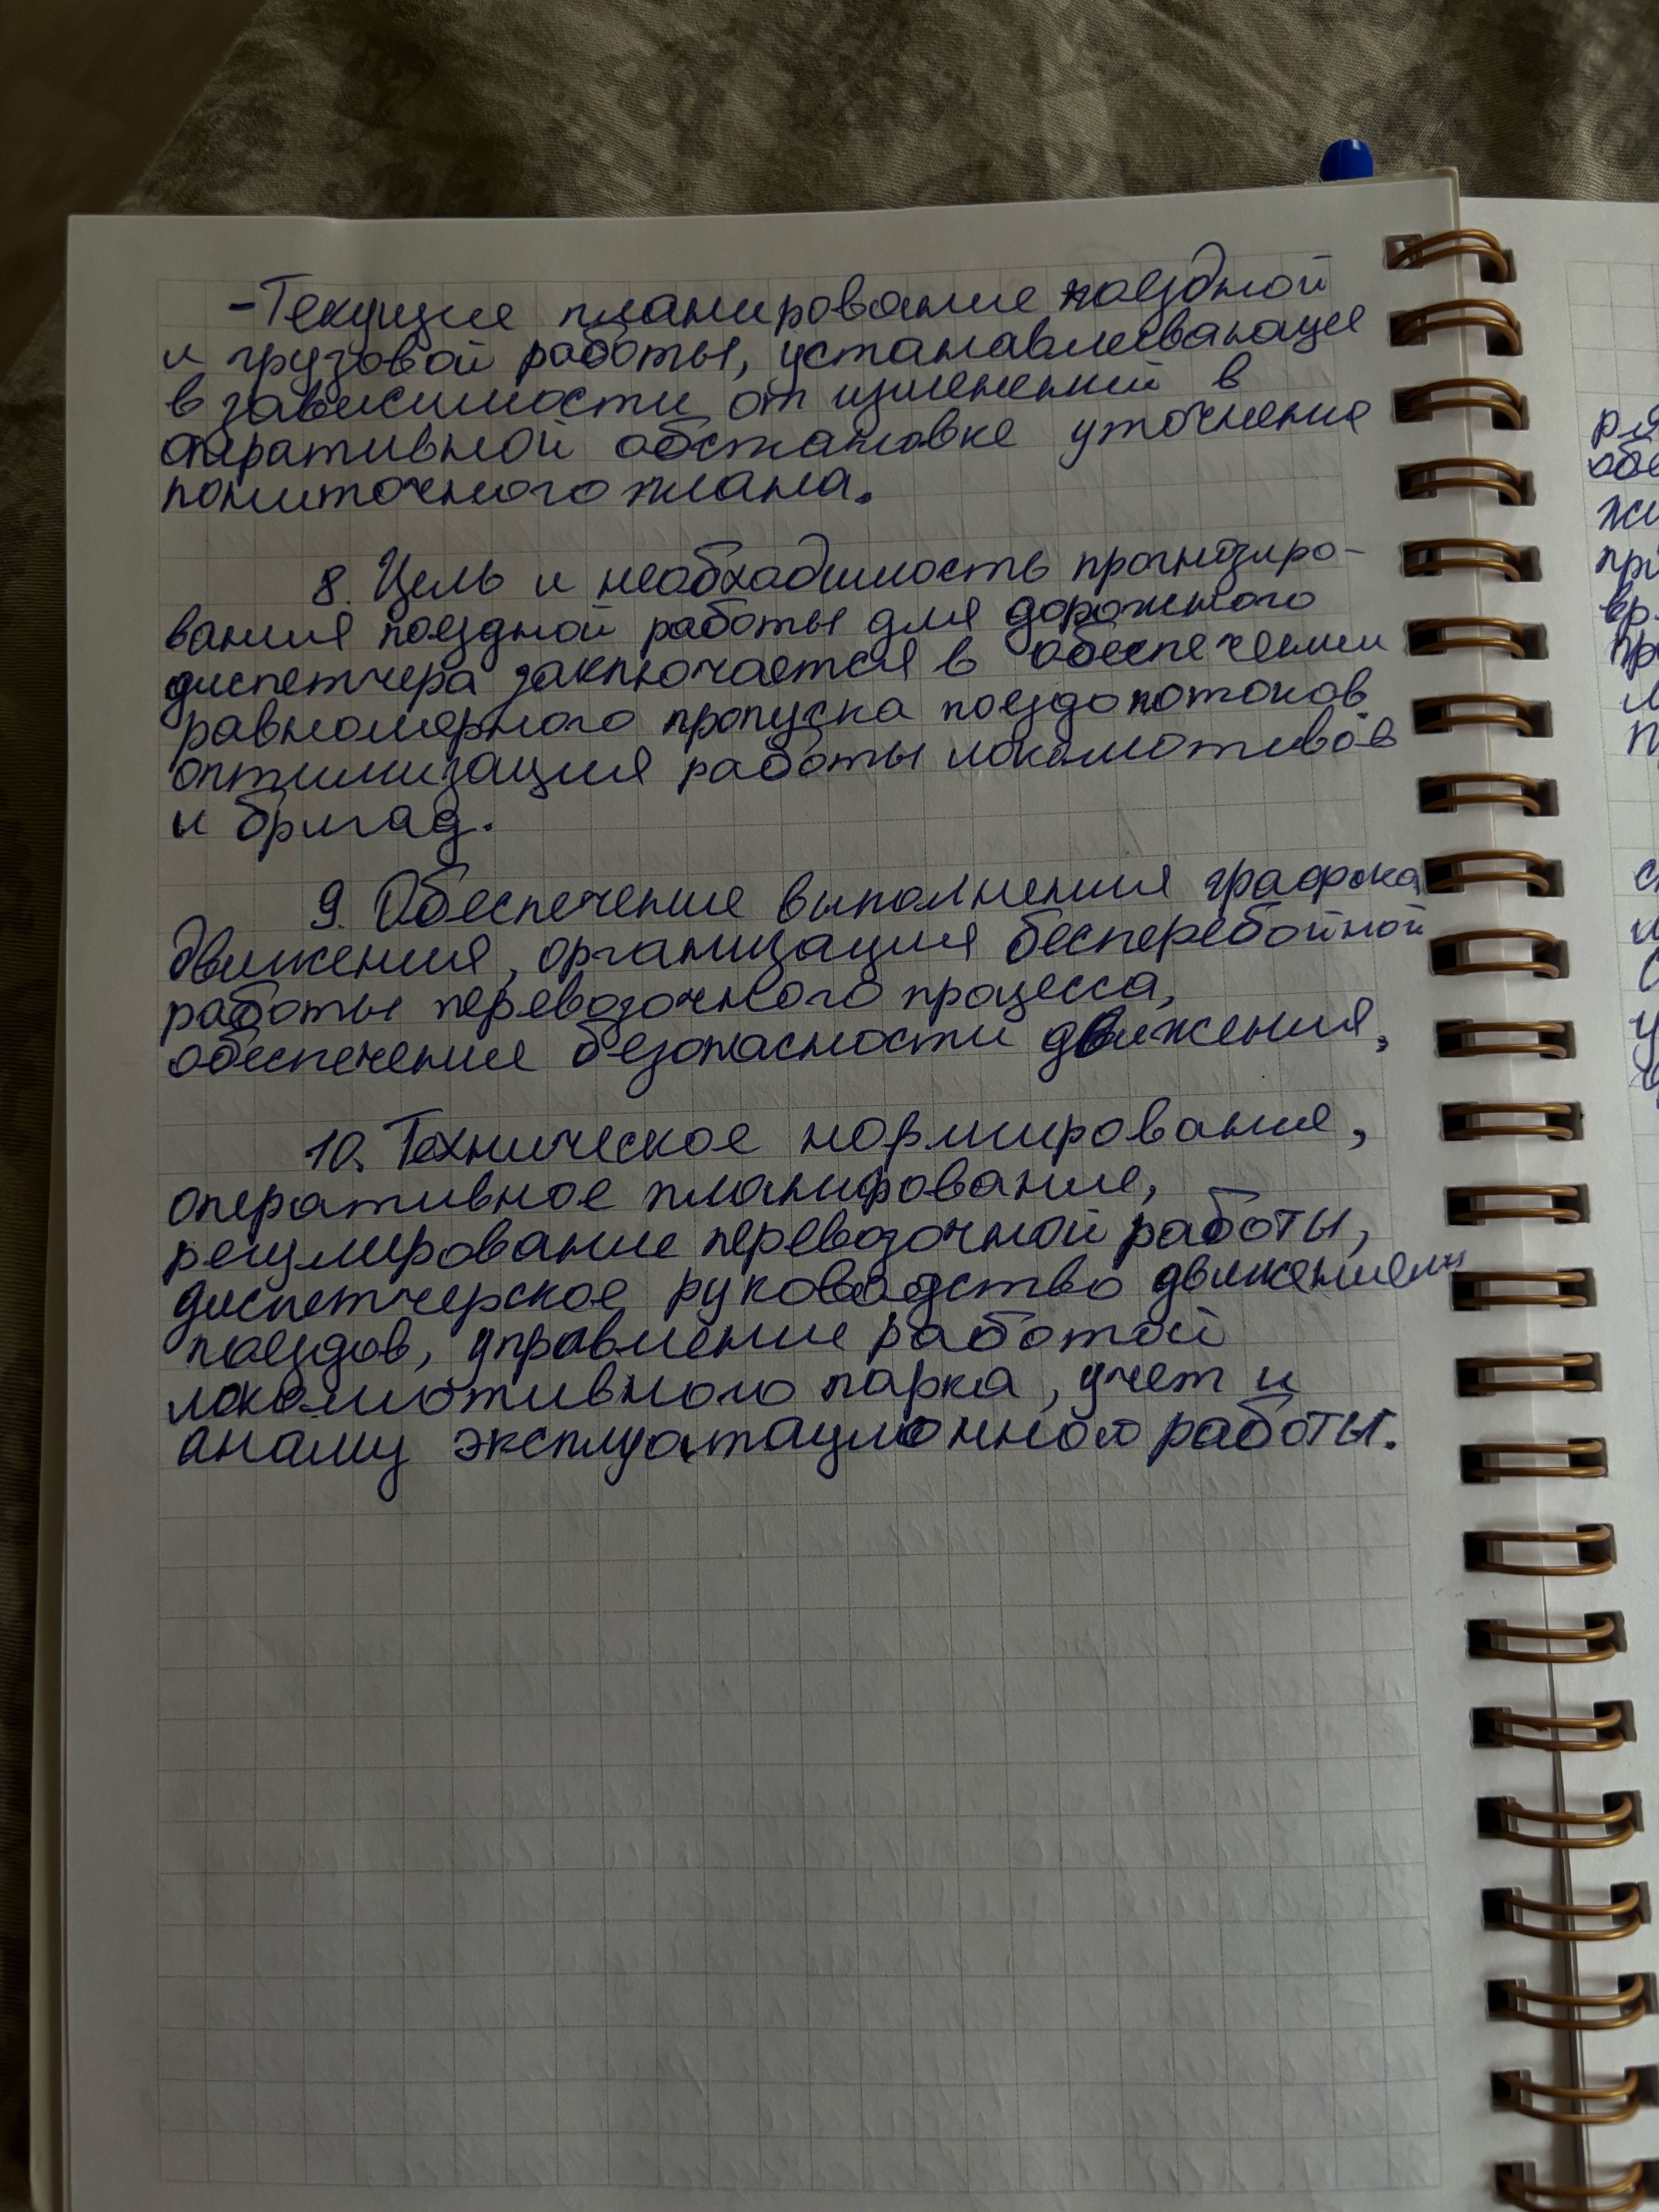 - Текущие планирование поездной
и грузовой работы, устанавливающее
в зависимости от изменений в
оперативной обстановке уточнения
плана.
8. Цель и необходимость прогнозиро-
вания поездной работы для дорожного
диспетчера заключается в обеспечении
равномерного пропуска поездопотоков
оптимизация работы локомотивов
и бригад.
9. Обеспечение выполнения графика
движения, организация бесперебойной
работы перевозочного процесса,
обеспечение безопасности движения,
10. Техническое нормирование,
оперативное планирование,
регулирование перевозочной работы,
диспетчерское руководство движением
поездов, управление работой
локомотивного парка, учет и
анализ эксплуатационной работы.